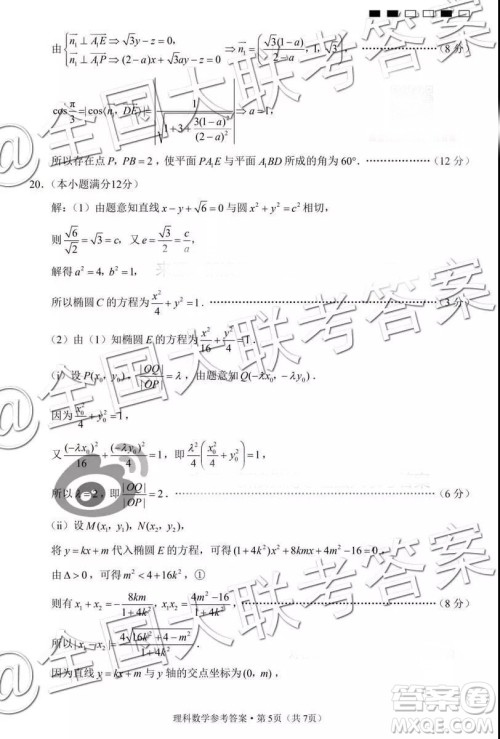 由{n₁⊥A₁E⇒√3y−z=0, n₁⊥A₁P⇒(2−a)x+√3ay−z=0 ⇒n₁=(√3(1−a)/(2−a), 1, √3), (8分)
cos π/3=|cos⟨n₁, DE⟩|=|1/√(1+3+3(1−a)²/(2−a)²)|⇒a=1,
所以存在点P,PB=2,使平面PA₁E与平面A₁BD所成的角为60°. (12分)
20.(本小题满分12分)
解:(1)由题意知直线x−y+√6=0与圆x²+y²=c²相切,
则√6/√2=√3=c,又e=√3/2=c/a,
解得a²=4,b²=1,
所以椭圆C的方程为x²/4+y²=1. (3分)
(2)由(1)知椭圆E的方程为x²/16+y²/4=1.
(i)设P(x₀, y₀),|OQ|/|OP|=λ,由题意知Q(−λx₀, −λy₀).
因为x₀²/4+y₀²=1.
又(−λx₀)²/16+(−λy₀)²/4=1,即λ²/4(x₀²/4+y₀²)=1.
所以λ=2,即|OQ|/|OP|=2. (6分)
(ii)设M(x₁, y₁),N(x₂, y₂),
将y=kx+m代入椭圆E的方程,可得(1+4k²)x²+8kmx+4m²−16=0,
由Δ>0,可得m²<4+16k²,①
则有x₁+x₂=−8km/(1+4k²),x₁x₂=(4m²−16)/(1+4k²). (8分)
所以|x₁−x₂|=4√(16k²+4−m²)/(1+4k²).
因为直线y=kx+m与y轴的交点坐标为(0, m),
理科数学参考答案·第5页(共7页)
@全国大联考答案
@全国大联考答案
@全国大联考答案